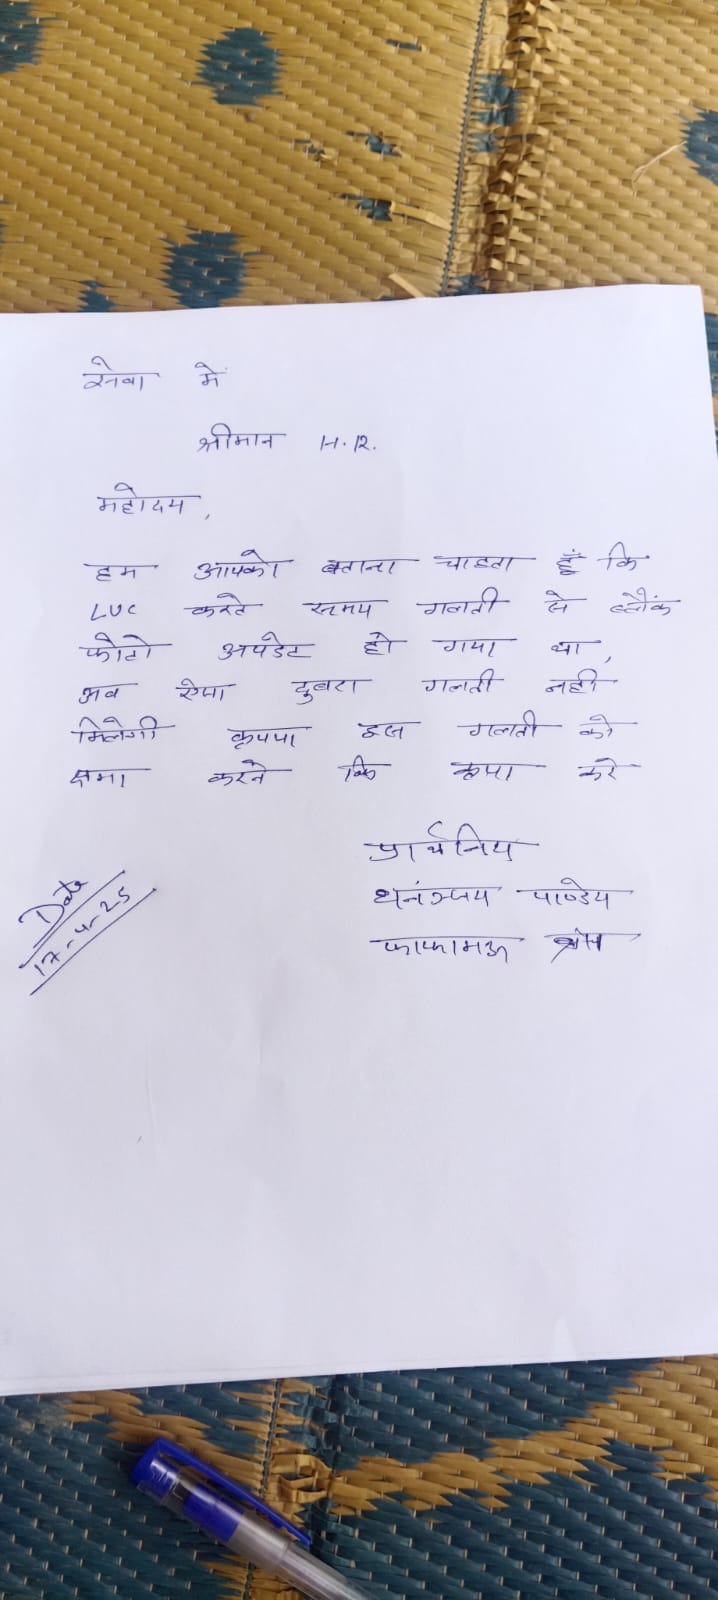 सेवा में
श्रीमान H.R.
महोदय,
हम आपको बताना चाहता हूँ कि
LUC करते समय गलती से ब्लैंक
फोटो अपडेट हो गया था,
अब ऐसा दुबरा गलती नही
मिलेगी कृपया इस गलती को
क्षमा करने कि कृपा करे
प्रार्थनिय
धनंञ्जय पाण्डेय
फाफामऊ
Date
17-4-25